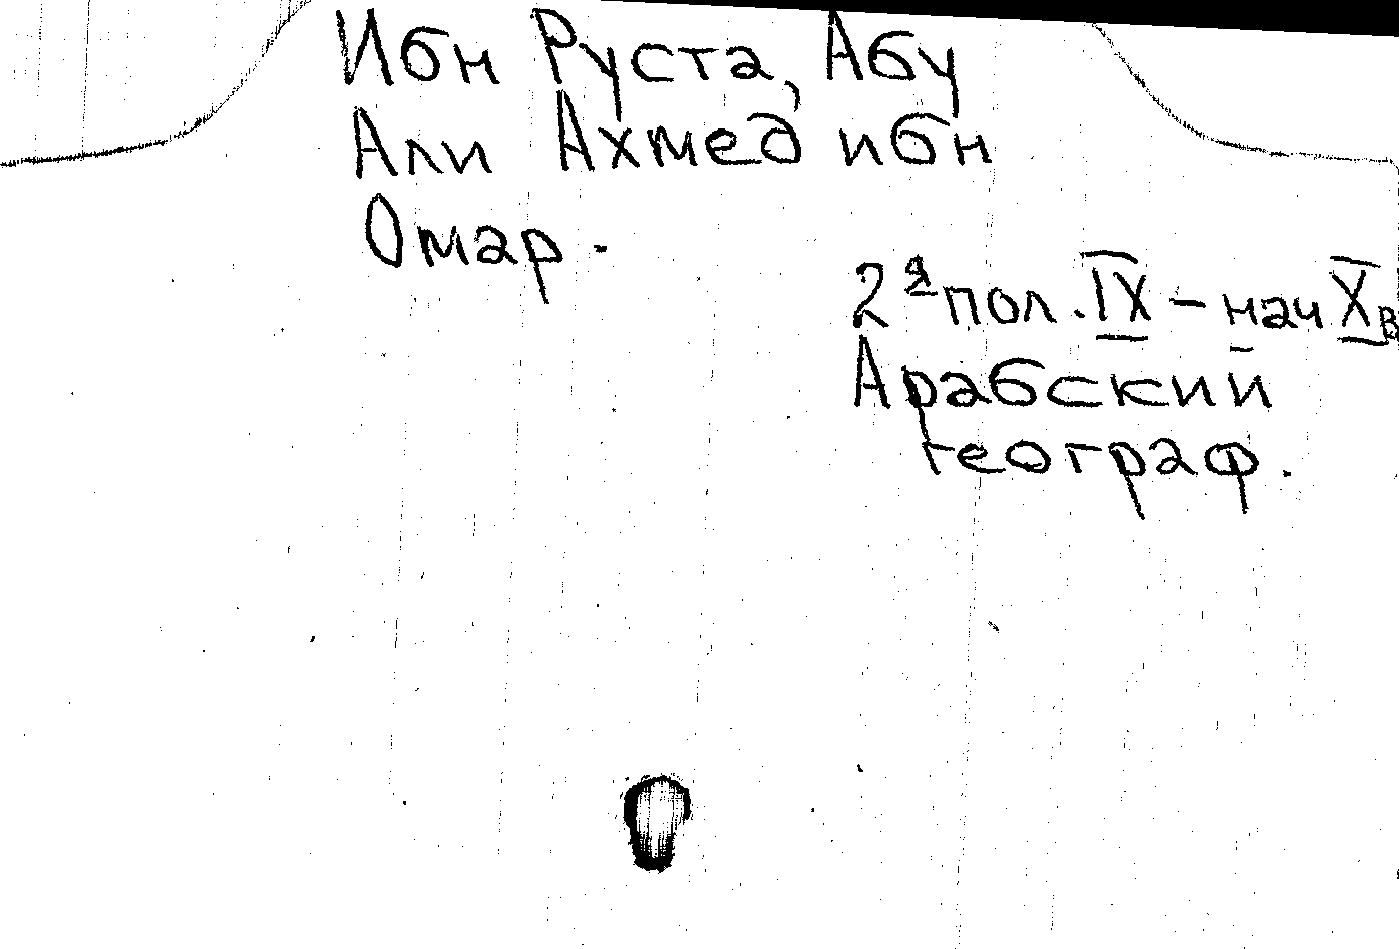 Ибн Руста, Абу
Али Ахмед ибн
Омар.
2я пол. IX – нач X в
Арабский
географ.